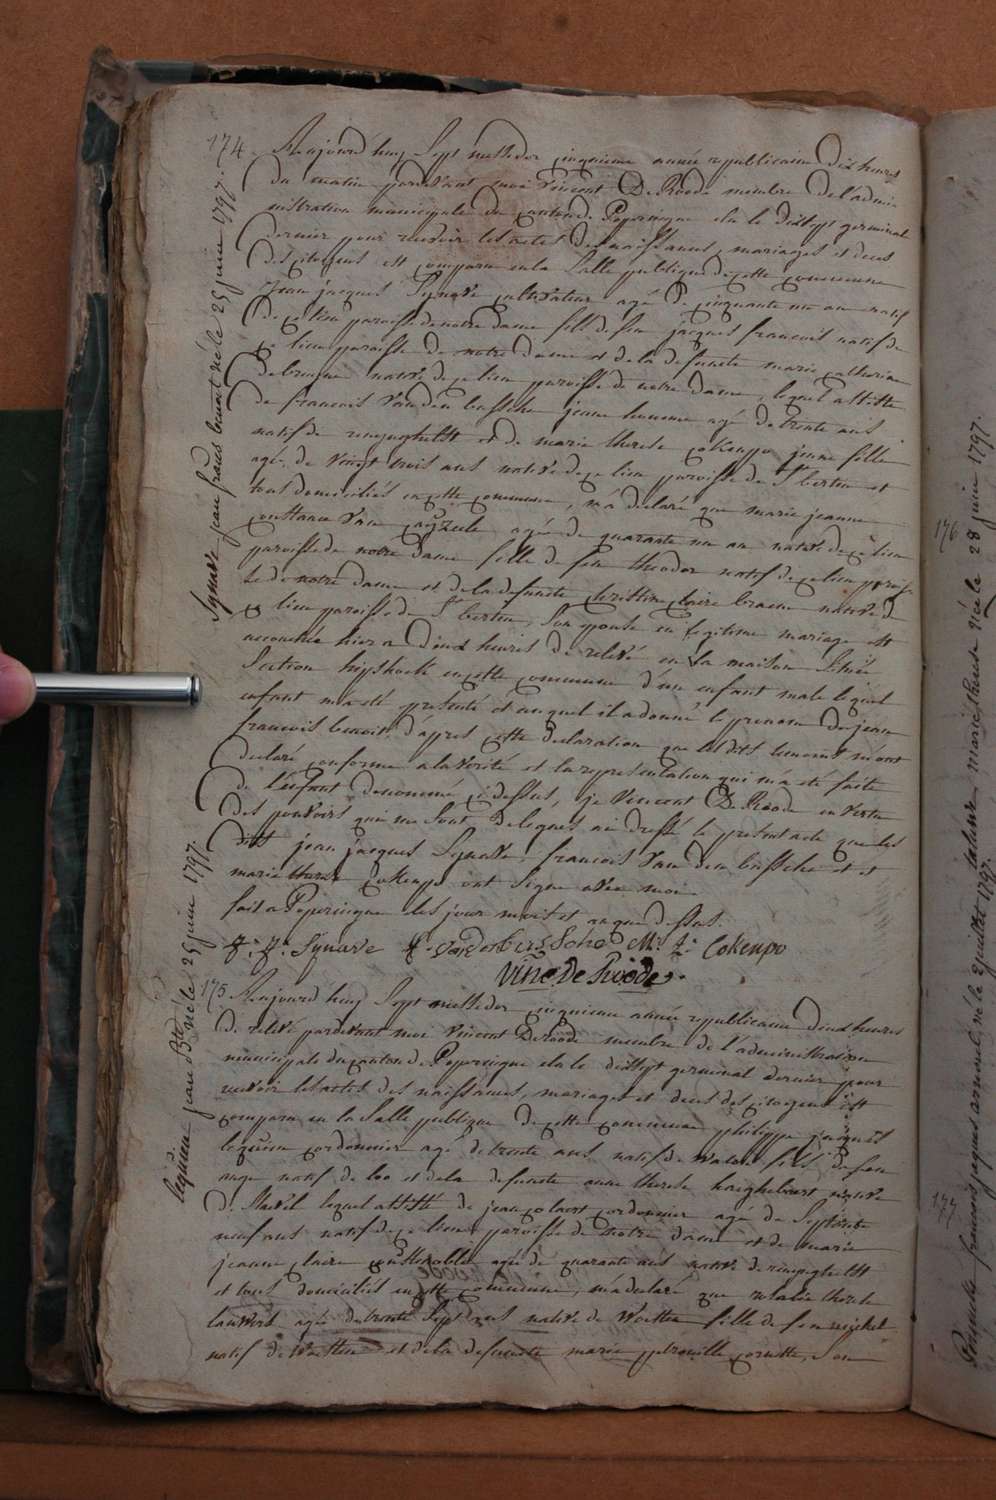 174
Aujourd'huy Sept messidor cinquieme année republicaine dix heures
du matin pardevant moi Vincent De Roode membre de l'admi
nistration municipale du canton de Poperingue elu le dixsept germinal
dernier pour recevoir les actes des naissances, mariages et deces
des citoyens est comparu en la Salle publique de cette commune
Jean jacques Synave cultivateur agé de cinquante un an natif
de ce lieu paroisse de notre dame fils de feu jacques francois natif de
ce lieu paroisse de notre dame et de la defuncte marie catherine
de bruyne native de ce lieu paroisse de notre dame, lequel assisté
de francois Vanden bussche jeune homme agé de trente ans
natif de renynghelst et de marie therese coKenpo jeune fille
agé de vingt trois ans native de ce lieu paroisse de St bertin et
tous domiciliés en cette commune, m'a declaré que marie jeanne
constance Van cayzeele agée de quarante un an native de ce lieu
paroisse de notre dame fille de feu theodor natif de ce lieu parois
se de notre dame et de la defuncte christine claire braem native de
ce lieu paroisse de St bertin, son epouse en legitime mariage est
accouchée hier a deux heures de relevé en la maison Située
Section hipshoek en cette commune d'un enfant male lequel
enfant m'a eté presenté et auquel il a donné le prenom de jean
francois benoit, d'après cette declaration que les dits temoins m'ont
declaré conforme a la verité et la representation qui m'a eté faite
de l'enfant denommé ci dessus, je Vincent De Roode en vertu
des pouvoirs que me sont delegués ai dressé le present acte que les
dits jean jacques Synave, francois Van den bussche et et
marie therese coKenpo ont Signé avec moi
fait a Poperingue les jour mois et an que dessus
J. J. Synave f. vandenbussche M. T. Cokenpo
Vinc De Roode
Synave jean frans benoit né le 25 juin 1797.
175
Aujourd'huy Sept messidor cinquieme année republicaine deux heures
de relevé pardevant moi Vincent De Roode membre de l'administration
municipale du canton de Poperingue elu le dixsept germinal dernier pour
recevoir les actes des naissances, mariages et deces des citoyens est
comparu en la Salle publique de cette commune philippe jacques
lequien cordonnier agé de trente ans natif de Watou fils de feu
ange natif de loo et de la defuncte anne therese haeghebaert native
de Stavel lequel assisté de jean colaert cordonnier agé de Septante
neuf ans natif de ce lieu paroisse de notre dame et de marie
jeanne claire constenoble agée de quarante ans native de reninghelst
et tous domiciliés en cette commune, m'a declaré que rosalie therese
lauwers agée de trente Sept ans native de Westen fille de feu michel
natif de Westen et de la defuncte marie petronille cornette, Son
lequien jean Bte né le 25 juin 1797.
176
Italiene marie therese née le 28 juin 1797.
177
francois jaques armand, né le 2 juillet 1797.